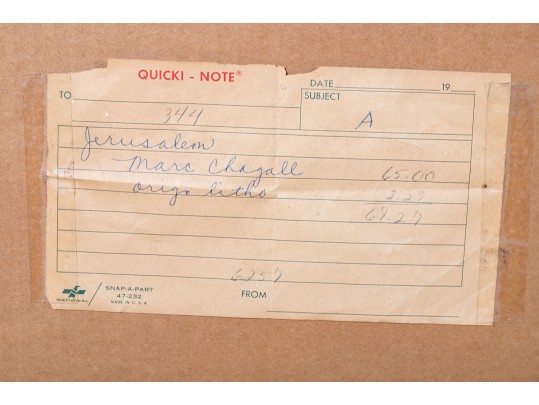 QUICKI - NOTE®
DATE 19
TO
SUBJECT
344
A
Jerusalem
Marc Chagall 65.00
orig. litho 2.27
67.27
6257
NATIONAL
SNAP-A-PART
47-232
MADE IN U. S. A.
FROM